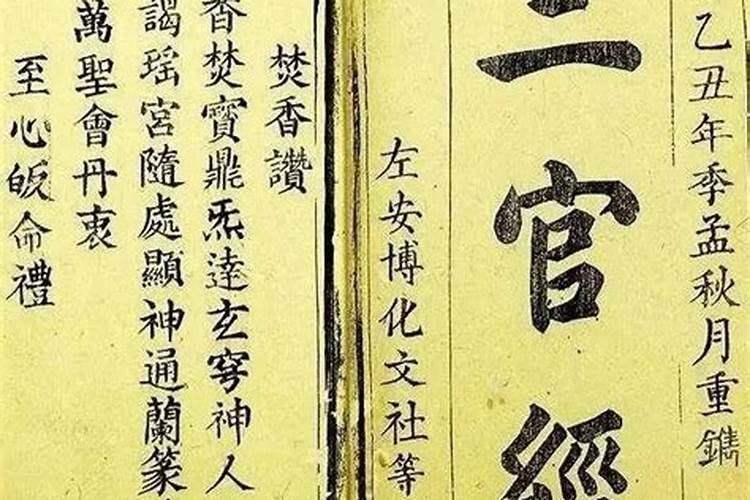 乙丑年季孟秋月重鐫
三官經
左安博化文社等
焚香讚
香焚寶鼎炁達玄穹神人
謁瑤宮隨處顯神通蘭篆
萬聖會丹衷
至心皈命禮